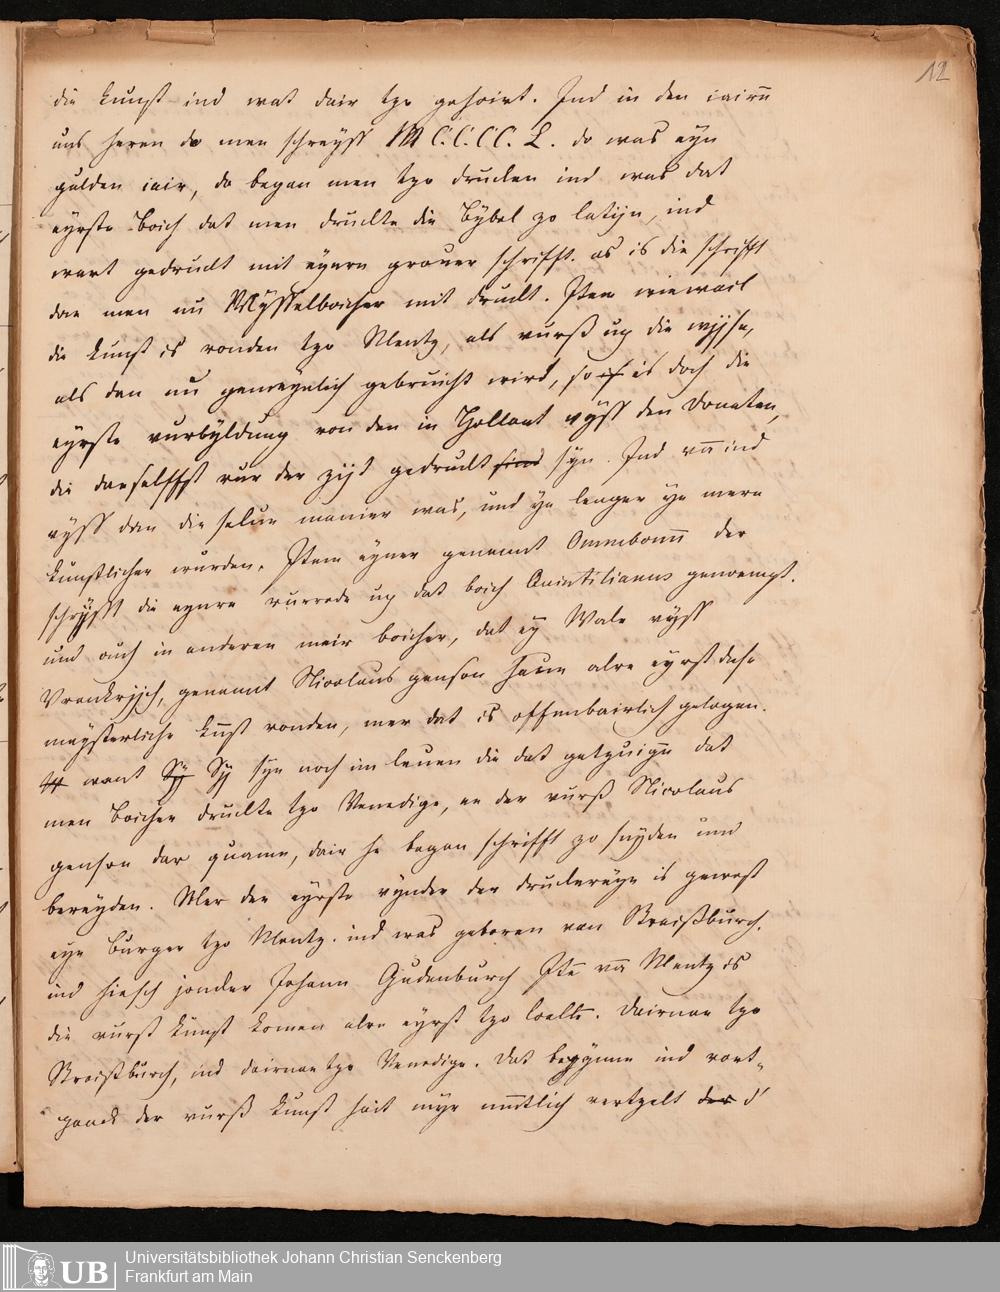 12
die kunst ind wat dair tzo gehoirt. Ind in den iairn̄
uns heren do men schreyff MCCCCL. do was eyn
gulden iair, do began men tzo drucken ind was dat
eyrste boich dat men druckte die Bybel zo latijn, ind
wart gedruckt mit eynre grouer schrifft. as is die schrifft
dae men nu Mysselboicher mit druckt. Item wiewail
die kunst is vonden tzo Mentz, als vurß up die wijse,
als dan nu gemeynlich gebruicht wird, so is doch die
eyrste vurbyldung vonden in Hollant uyss den Donaten,
die daeselffst vur der zijt gedruckt sind syn. Ind van ind
uyss den die selue manier was, und yn lenger yn mere
kunstlicher wurden. Item eyner genannt Omnebonū der
schryfft die eynre vurrede up dat boich Quintilianus genoempt.
und ouch in anderen meir boicher, dat eȳ Wale uyss
Vrankrijch, genannt Nicolaus genson haue alre eyrst dese
meysterliche kūst vonden, mer dat is offenbairlich gelogen.
want Sy Sy syn noch im leuen die dat getzuigē dat
men boicher druckte tzo Venedige, ee der vurß Nicolaus
genson dar quame, dair he began schrifft zo snyden und
bereyden. Mer der eyrste vynder der druckereyen is gewest
eyn burger tzo Mentz. ind was geboren van Straißburch.
ind hiesch joncker Johann Gudenburch Itē van Mentz is
die vurß kunst komen alre eyrst tzo Coellē. Dairnae tzo
Straißburch, ind dairnae tzo Venedige. Dat begynne ind vort-
ganck der vurß kunst hait myr mūtlich vertzelt der d'
Universitätsbibliothek Johann Christian Senckenberg
UB Frankfurt am Main